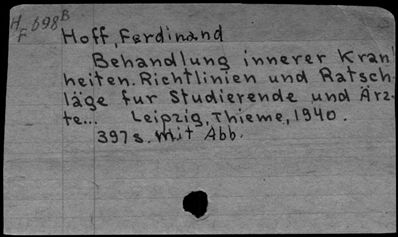 H 698 B
F
Hoff, Ferdinand
Behandlung innerer Kran
heiten. Richtlinien und Ratsch
läge fur Studierende und Ärz
te... Leipzig, Thieme, 1940.
397 s. mit Abb.